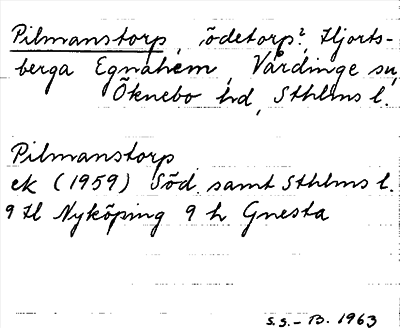 Pilmanstorp, ödetorp?, Hjorts-
berga Egnahem, Vårdinge sn,
Öknebo hd, Sthlms l.
Pilmanstorp
ek (1959) Söd. samt Sthlms l.
9 Hl Nyköping 9 h Gnesta
S.S.-B. 1963